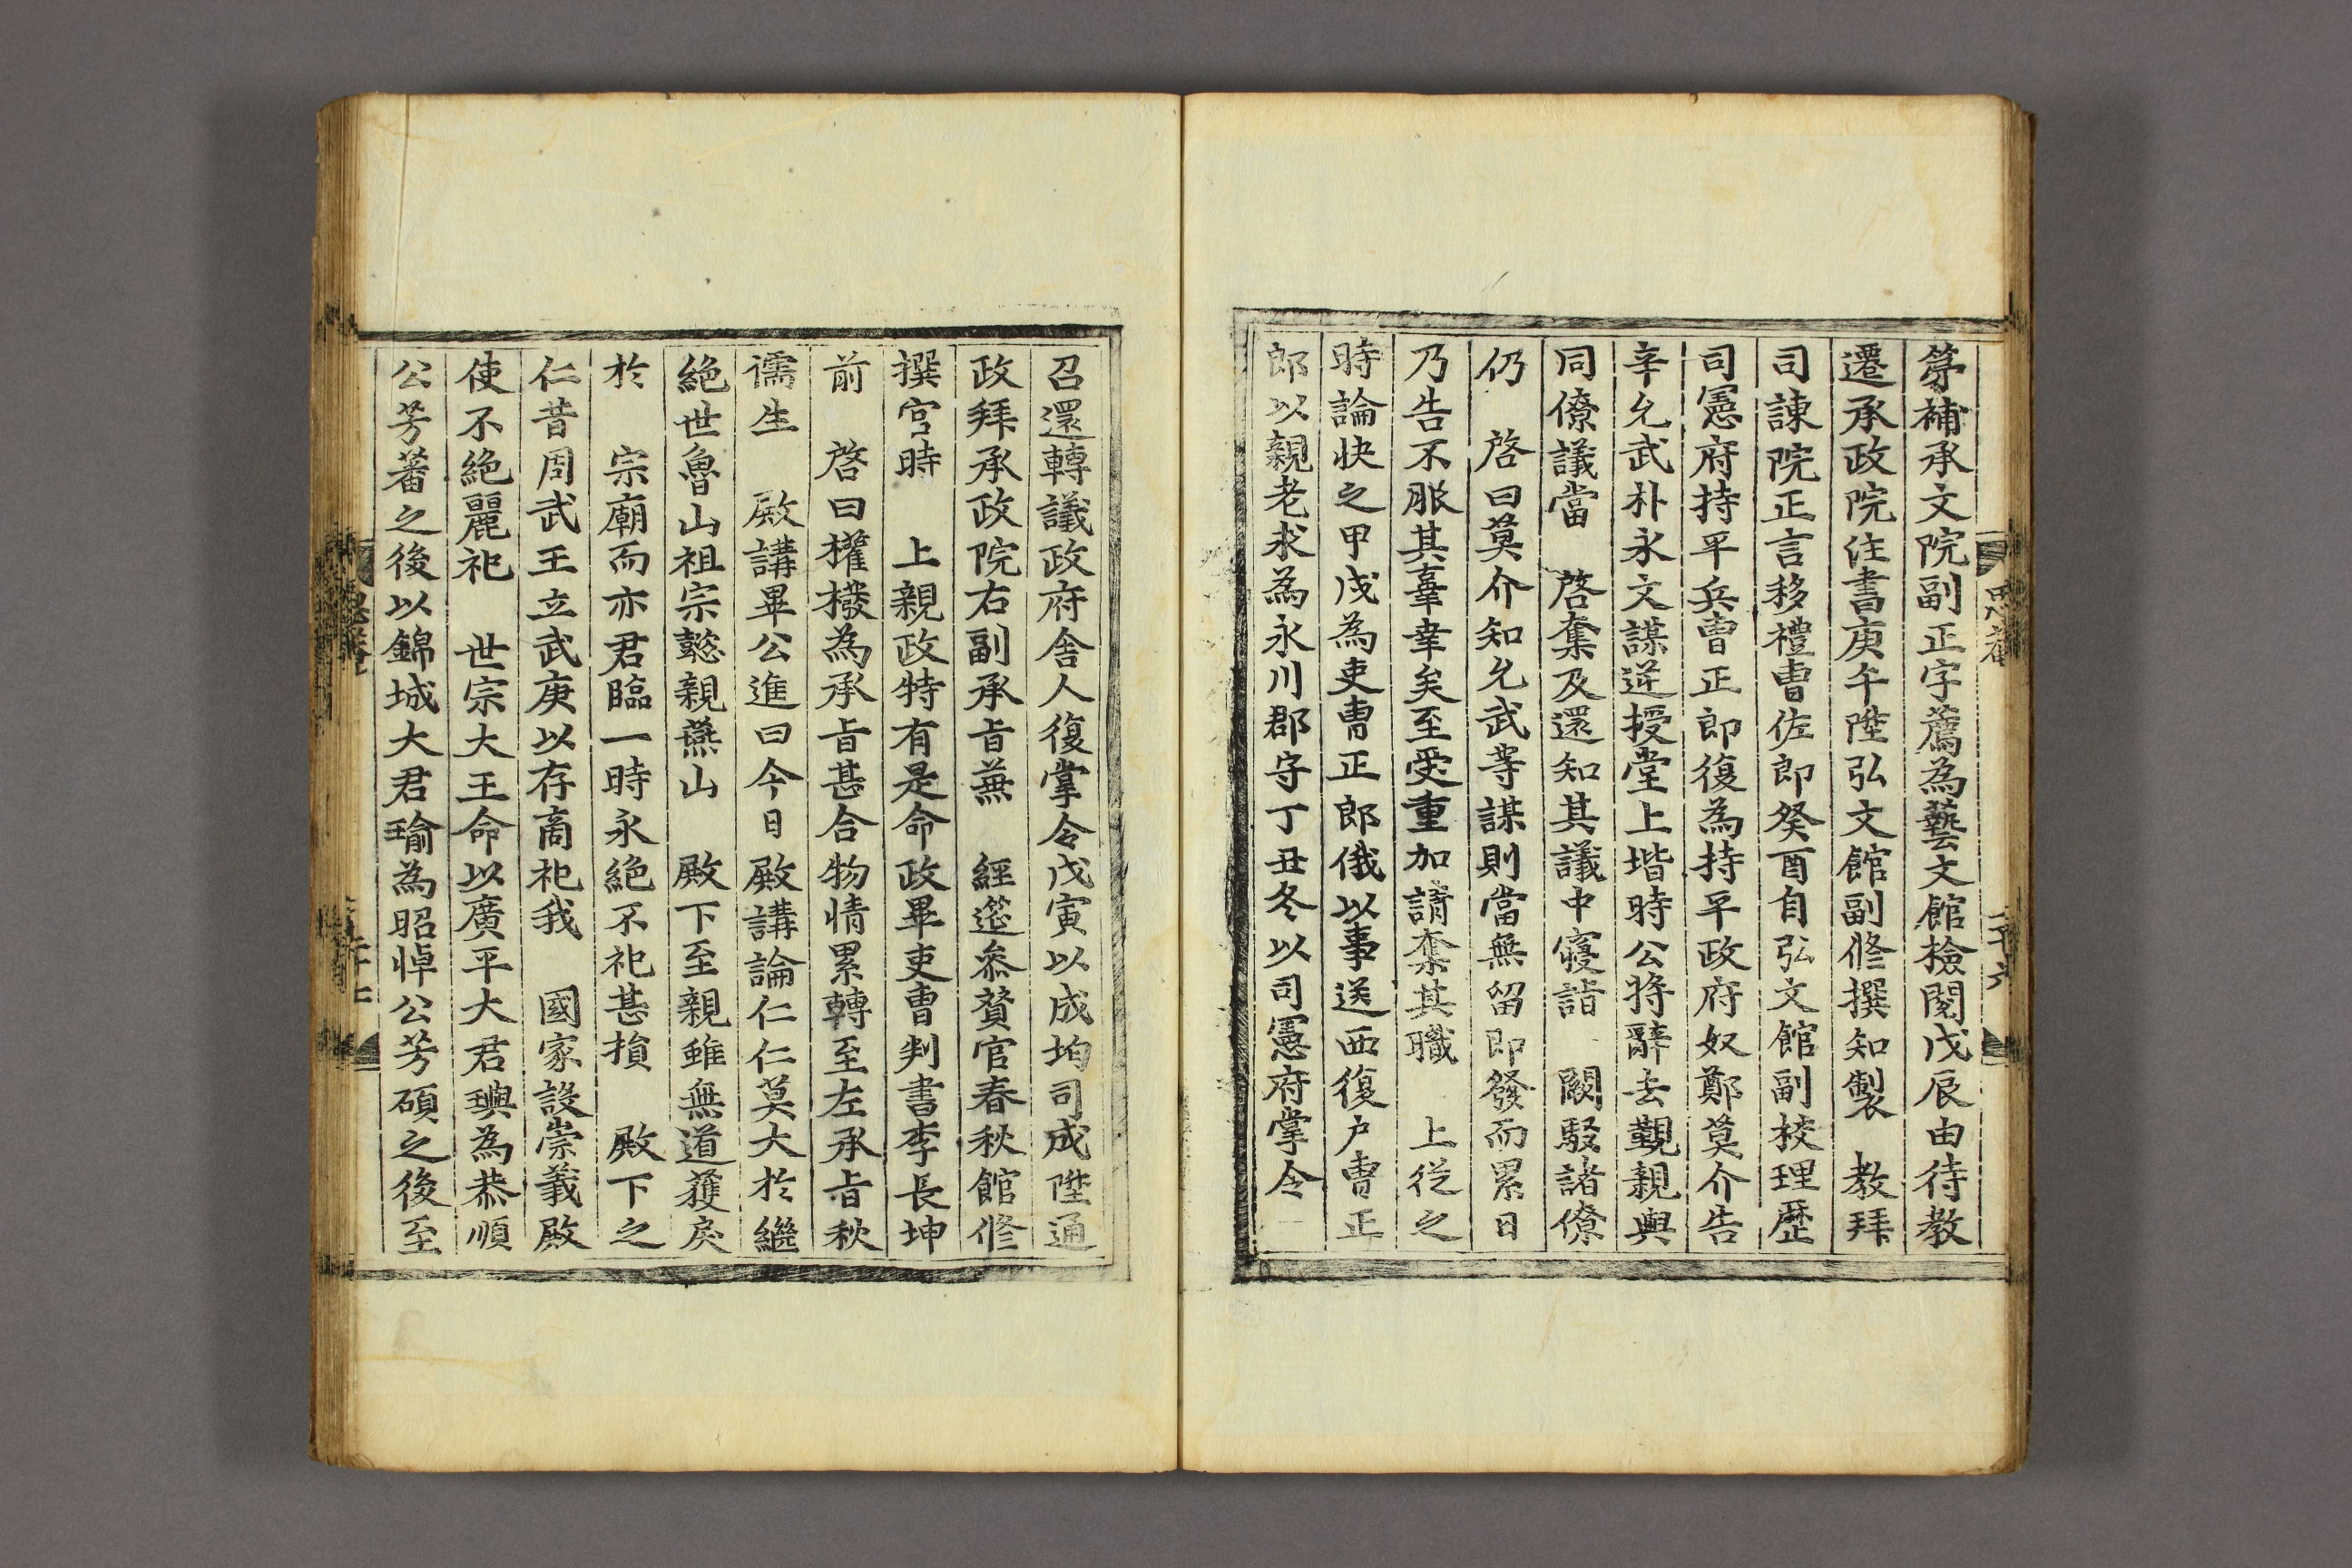 第補承文院副正字薦為藝文館檢閱戊辰由待教
遷承政院注書庚午陞弘文館副修撰知製 教拜
司諫院正言移禮曹佐郎癸酉自弘文館副校理歷
司憲府持平兵曹正郎復為持平政府奴鄭莫介告
辛允武朴永文謀逆授堂上堦時公將辭去覲親與
同僚議當 啓奪及還知其議中寢詣 闕駁諸僚
仍 啓曰莫介知允武等謀則當無留即發而累日
乃告不服其辜幸矣至受重加請奪其職 上從之
時論快之甲戌為吏曹正郎俄以事送西復戶曹正
郎以親老求為永川郡守丁丑冬以司憲府掌令
召還轉議政府舍人復掌令戊寅以成均司成陞通
政拜承政院右副承旨兼 經筵參贊官春秋館修
撰官時 上親政特有是命政畢吏曹判書李長坤
前 啓曰權橃為承旨甚合物情累轉至左承旨秋
儒生 殿講畢公進曰今日殿講論仁仁莫大於繼
絕世魯山祖宗懿親燕山 殿下至親雖無道獲戾
於 宗廟而亦君臨一時永絕不祀甚損 殿下之
仁昔周武王立武庚以存商祀我 國家設崇義殿
使不絕麗祀 世宗大王命以廣平大君璵為恭順
公芳蕃之後以錦城大君瑜為昭悼公芳碩之後至